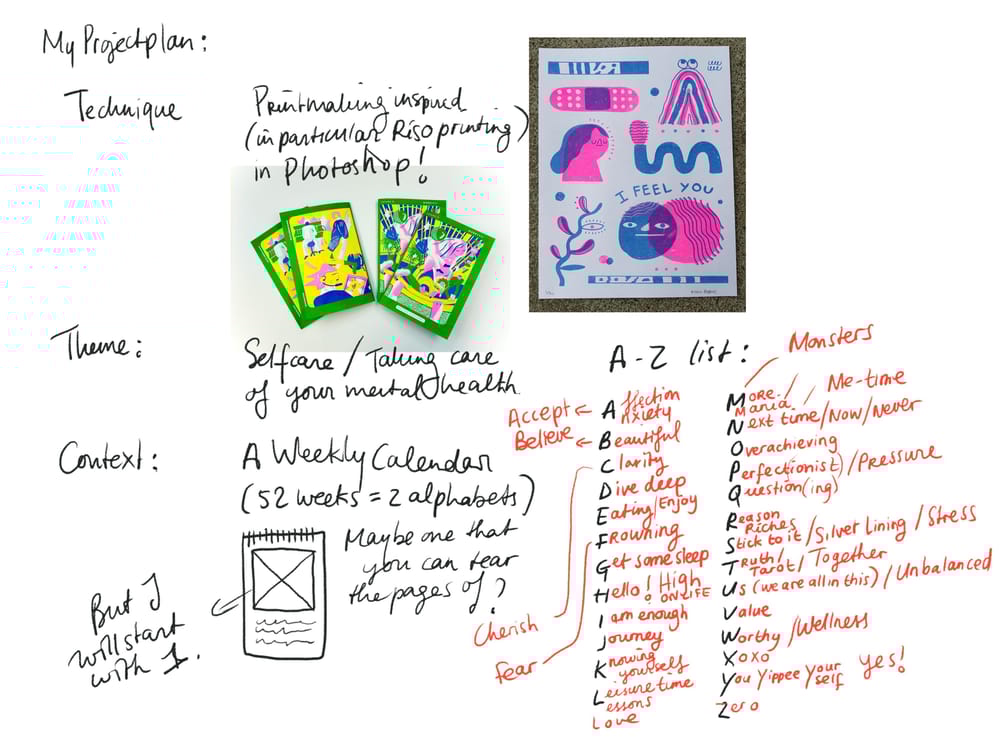 My Projectplan:
Technique
Printmaking inspired
(in particular Riso printing)
in Photoshop!
I FEEL YOU
Theme:
Selfcare / Taking care
of your mental health
Context:
A Weekly Calendar
(52 weeks = 2 alphabets)
Maybe one that
you can tear
the pages of?
But I
will start
with 1.
A-Z list:
Monsters
Accept
Believe
Cherish
Fear
Affection
Anxiety
Beautiful
Clarity
Dive deep
Eating/Enjoy
Frowning
Get some sleep
Hello! High
ON LIFE
I am enough
Journey
Knowing
yourself
Leisure time
Lessons
Love
More / Me-time
Mania
Next time/Now/Never
Overachieving
Perfectionist)/Pressure
Question(ing)
Reason
Riches
Stick to it/Silver Lining / Stress
Truth/
Tarot/ Together
Us (we are all in this) / Unbalanced
Value
Worthy /Wellness
Xoxo
You Yippee Your
self
yes!
Zero